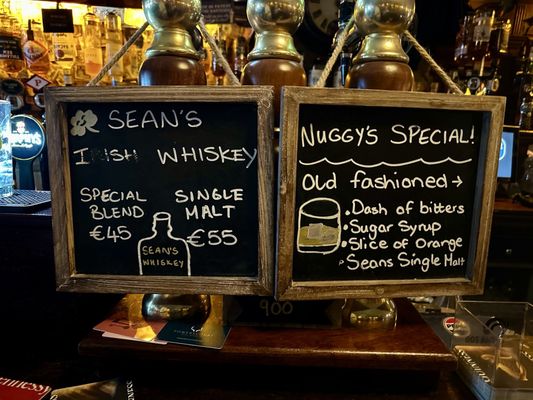 SEAN'S
IRISH WHISKEY
SPECIAL
BLEND
€45
SINGLE
MALT
€55
SEAN'S
WHISKEY
NUGGY'S SPECIAL!
Old fashioned →
• Dash of bitters
• Sugar Syrup
• Slice of Orange
• Seans Single Malt
900